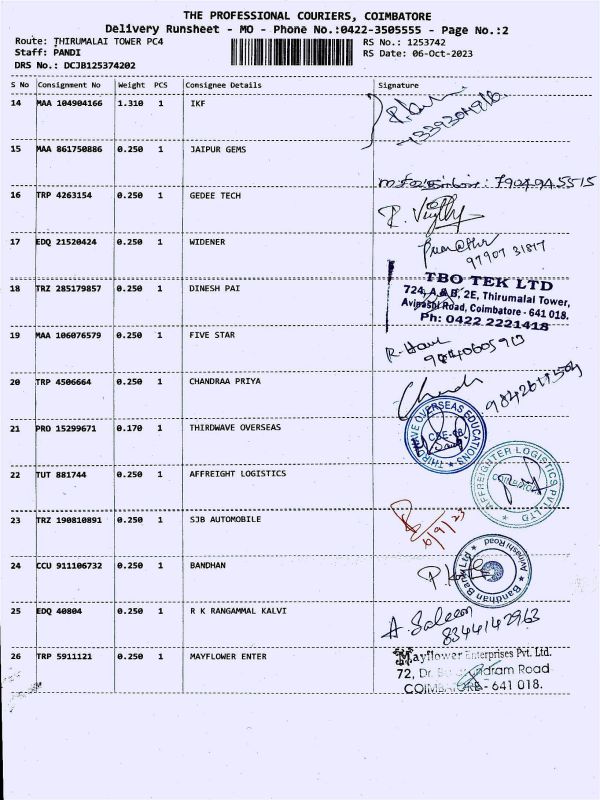 THE PROFESSIONAL COURIERS, COIMBATORE
Delivery Runsheet - MO - Phone No.:0422-3505555 - Page No.:2
Route: THIRUMALAI TOWER PC4 RS No.: 1253742
Staff: PANDI RS Date: 06-Oct-2023
DRS No.: DCJB125374202
S No Consignment No Weight PCS Consignee Details Signature
14 MAA 104904166 1.310 1 IKF
15 MAA 861750886 0.250 1 JAIPUR GEMS
7904945515
16 TRP 4263154 0.250 1 GEDEE TECH
17 EDQ 21520424 0.250 1 WIDENER
97907 31817
18 TRZ 285179857 0.250 1 DINESH PAI
TBO TEK LTD
724, A & B, 2E, Thirumalai Tower,
Avinashi Road, Coimbatore - 641 018.
Ph: 0422 2221418
19 MAA 106076579 0.250 1 FIVE STAR
20 TRP 4506664 0.250 1 CHANDRAA PRIYA
21 PRO 15299671 0.170 1 THIRDWAVE OVERSEAS
THIRDWAVE OVERSEAS EDUCATIONS
22 TUT 881744 0.250 1 AFFREIGHT LOGISTICS
AFFREIGHTER LOGISTICS PVT. LTD
COIMBATORE
23 TRZ 190810891 0.250 1 SJB AUTOMOBILE
6/9/23
24 CCU 911106732 0.250 1 BANDHAN
Bandhan Bank Ltd
Avinashi Road
25 EDQ 40804 0.250 1 R K RANGAMMAL KALVI
A. Saleem
8344142963
26 TRP 5911121 0.250 1 MAYFLOWER ENTER
Mayflower Enterprises Pvt. Ltd.
72, Dr. Road
COIMBATORE - 641 018.